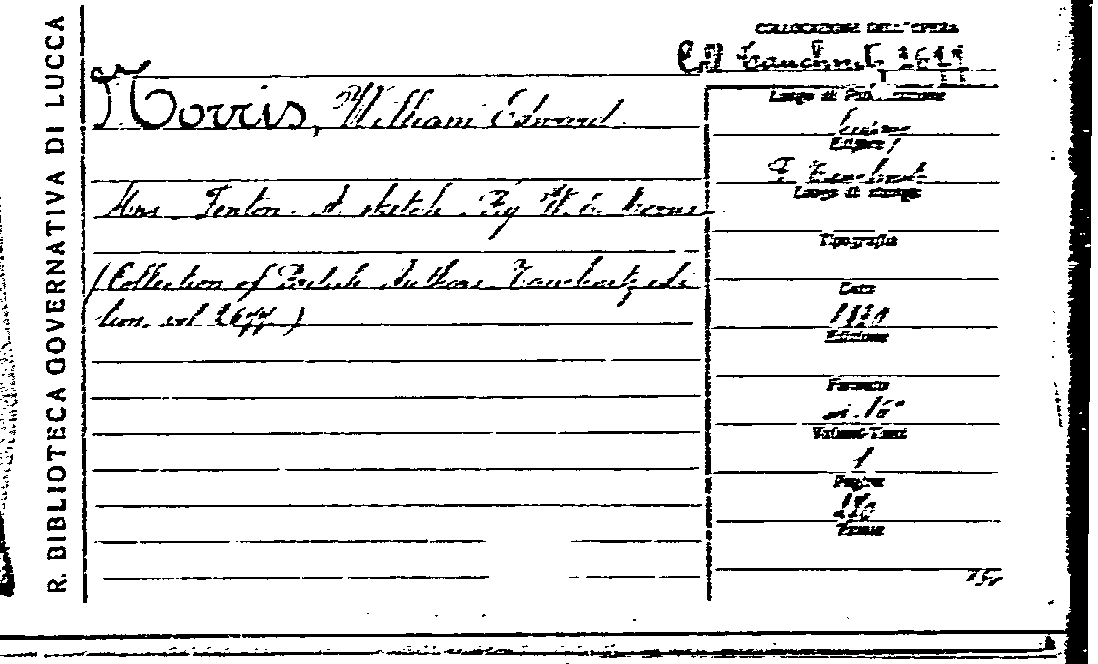 R. BIBLIOTECA GOVERNATIVA DI LUCCA
COLLOCAZIONE DELL'OPERA
Coll. Tauchnitz
Norris, William Edward
Mrs. Fenton. A sketch. By W. E. Norris
(Collection of British Authors. Tauchnitz edi
tion. vol 26
Luogo di Pubblicazione
Editore
Luogo di stampa
Tipografia
Data
Edizione
Formato
in 16°
Volumi-Tomi
1
Pagine